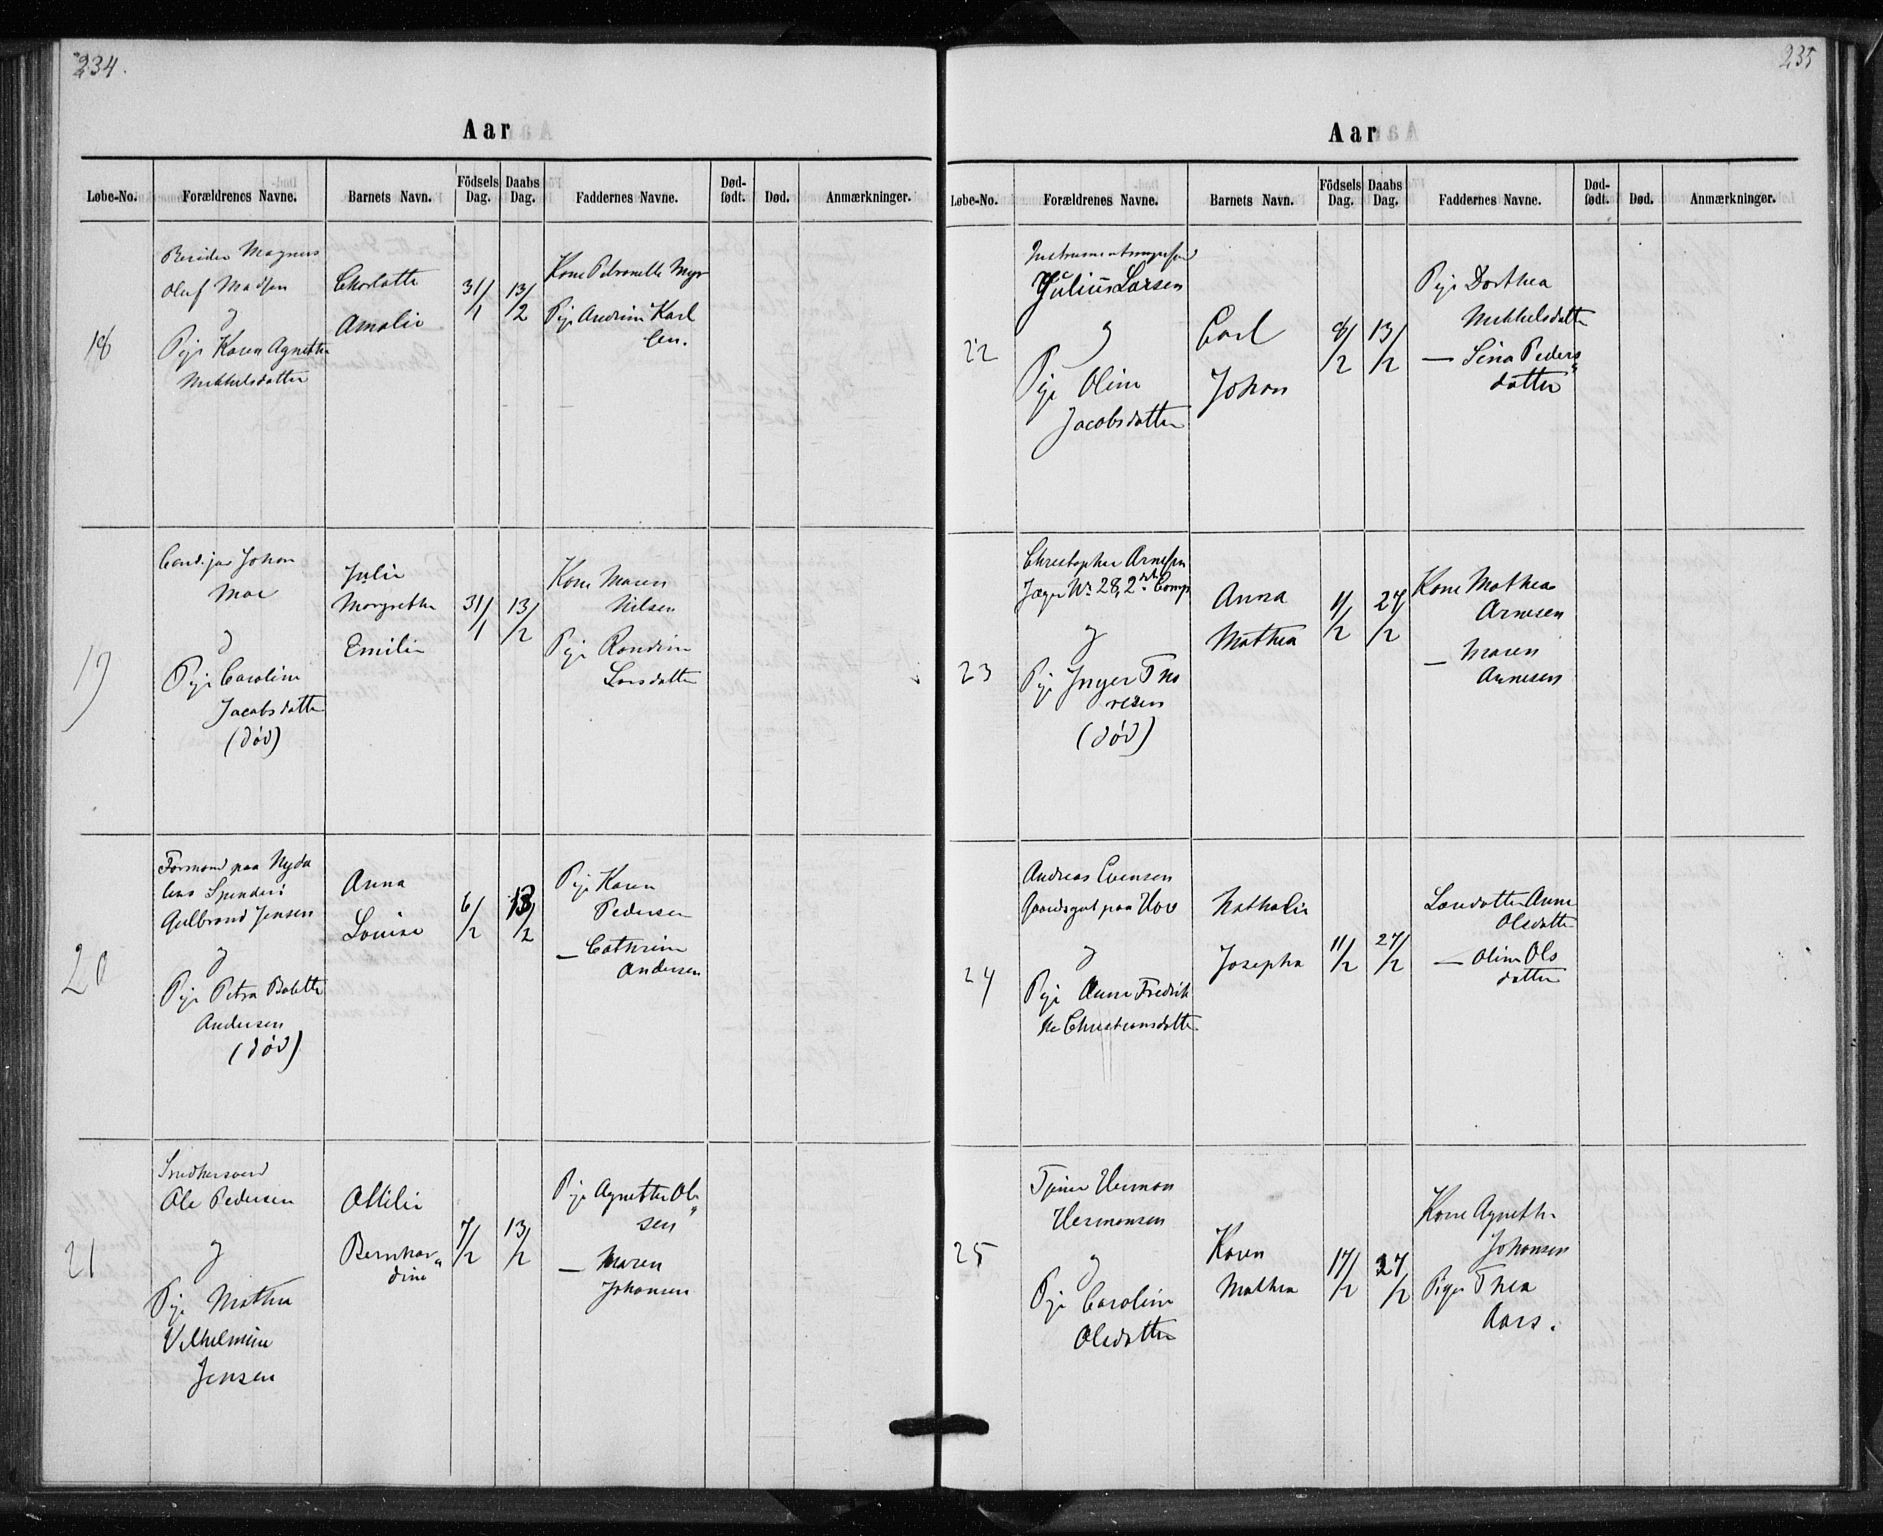 234.
Aar
Løbe-No. Forældrenes Navne. Barnets Navn. Födsels Dag. Daabs Dag. Faddernes Navne. Død-født. Død. Anmærkninger.
18
Berider Magnus
Oluf Madsen
g
Pige Karen Agnethe
Mikkelsdatter
Charlotte
Amalie
31/1
13/2
Kone Petronelle Myr
Pige Andrine Karl
sen.
19
Cand. jur Johan
Moe
g
Pige Caroline
Jacobsdatter
(død)
Julie
Margrethe
Emilie
31/1
13/2
Kone Maren
Nilsen
Pige Randine
Larsdatter
20
Formand paa Nyda
lens Spinderi
Gulbrand Jensen
g
Pige Petra Bolette
Andersen
(død)
Anna
Louise
6/2
13/2
Pige Karen
Pedersen
— Cathrine
Andersen
21
Snedkersvend
Ole Pedersen
g
Pige Mathea
Vilhelmine
Jensen
Ottilie
Bernhar„
dine
7/2
13/2
Pige Agnethe Ol„
sen
— Maren
Johansen
235
Aar
Løbe-No. Forældrenes Navne. Barnets Navn. Födsels Dag. Daabs Dag. Faddernes Navne. Død-født. Død. Anmærkninger.
22
Julius Larsen
g
Pige Oline
Jacobsdatter
Carl
Johan
8/2
13/2
Pige Dorthea
Mikkelsdatter
— Lina Peders„
datter
23
Christopher Arnesen
Jæger No 28, 2den Comp
g
Pige Inger Tho
resen
(død)
Anna
Mathea
11/2
27/2
Kone Mathea
Arnesen
— Maren
Arnesen
24
Andreas Evensen
Gaardsgut paa Hov
g
Pige Anne Fredrik
ke Christiansdatter
Nathalie
Josepha
11/2
27/2
Anne
Olsdatter
— Oline Ols
datter
25
Tjener Herman
Hermansen
g
Pige Caroline
Olsdatter
Karen
Mathea
17/2
27/2
Kone Agnethe
Johansen
Pige Thea
Aars.